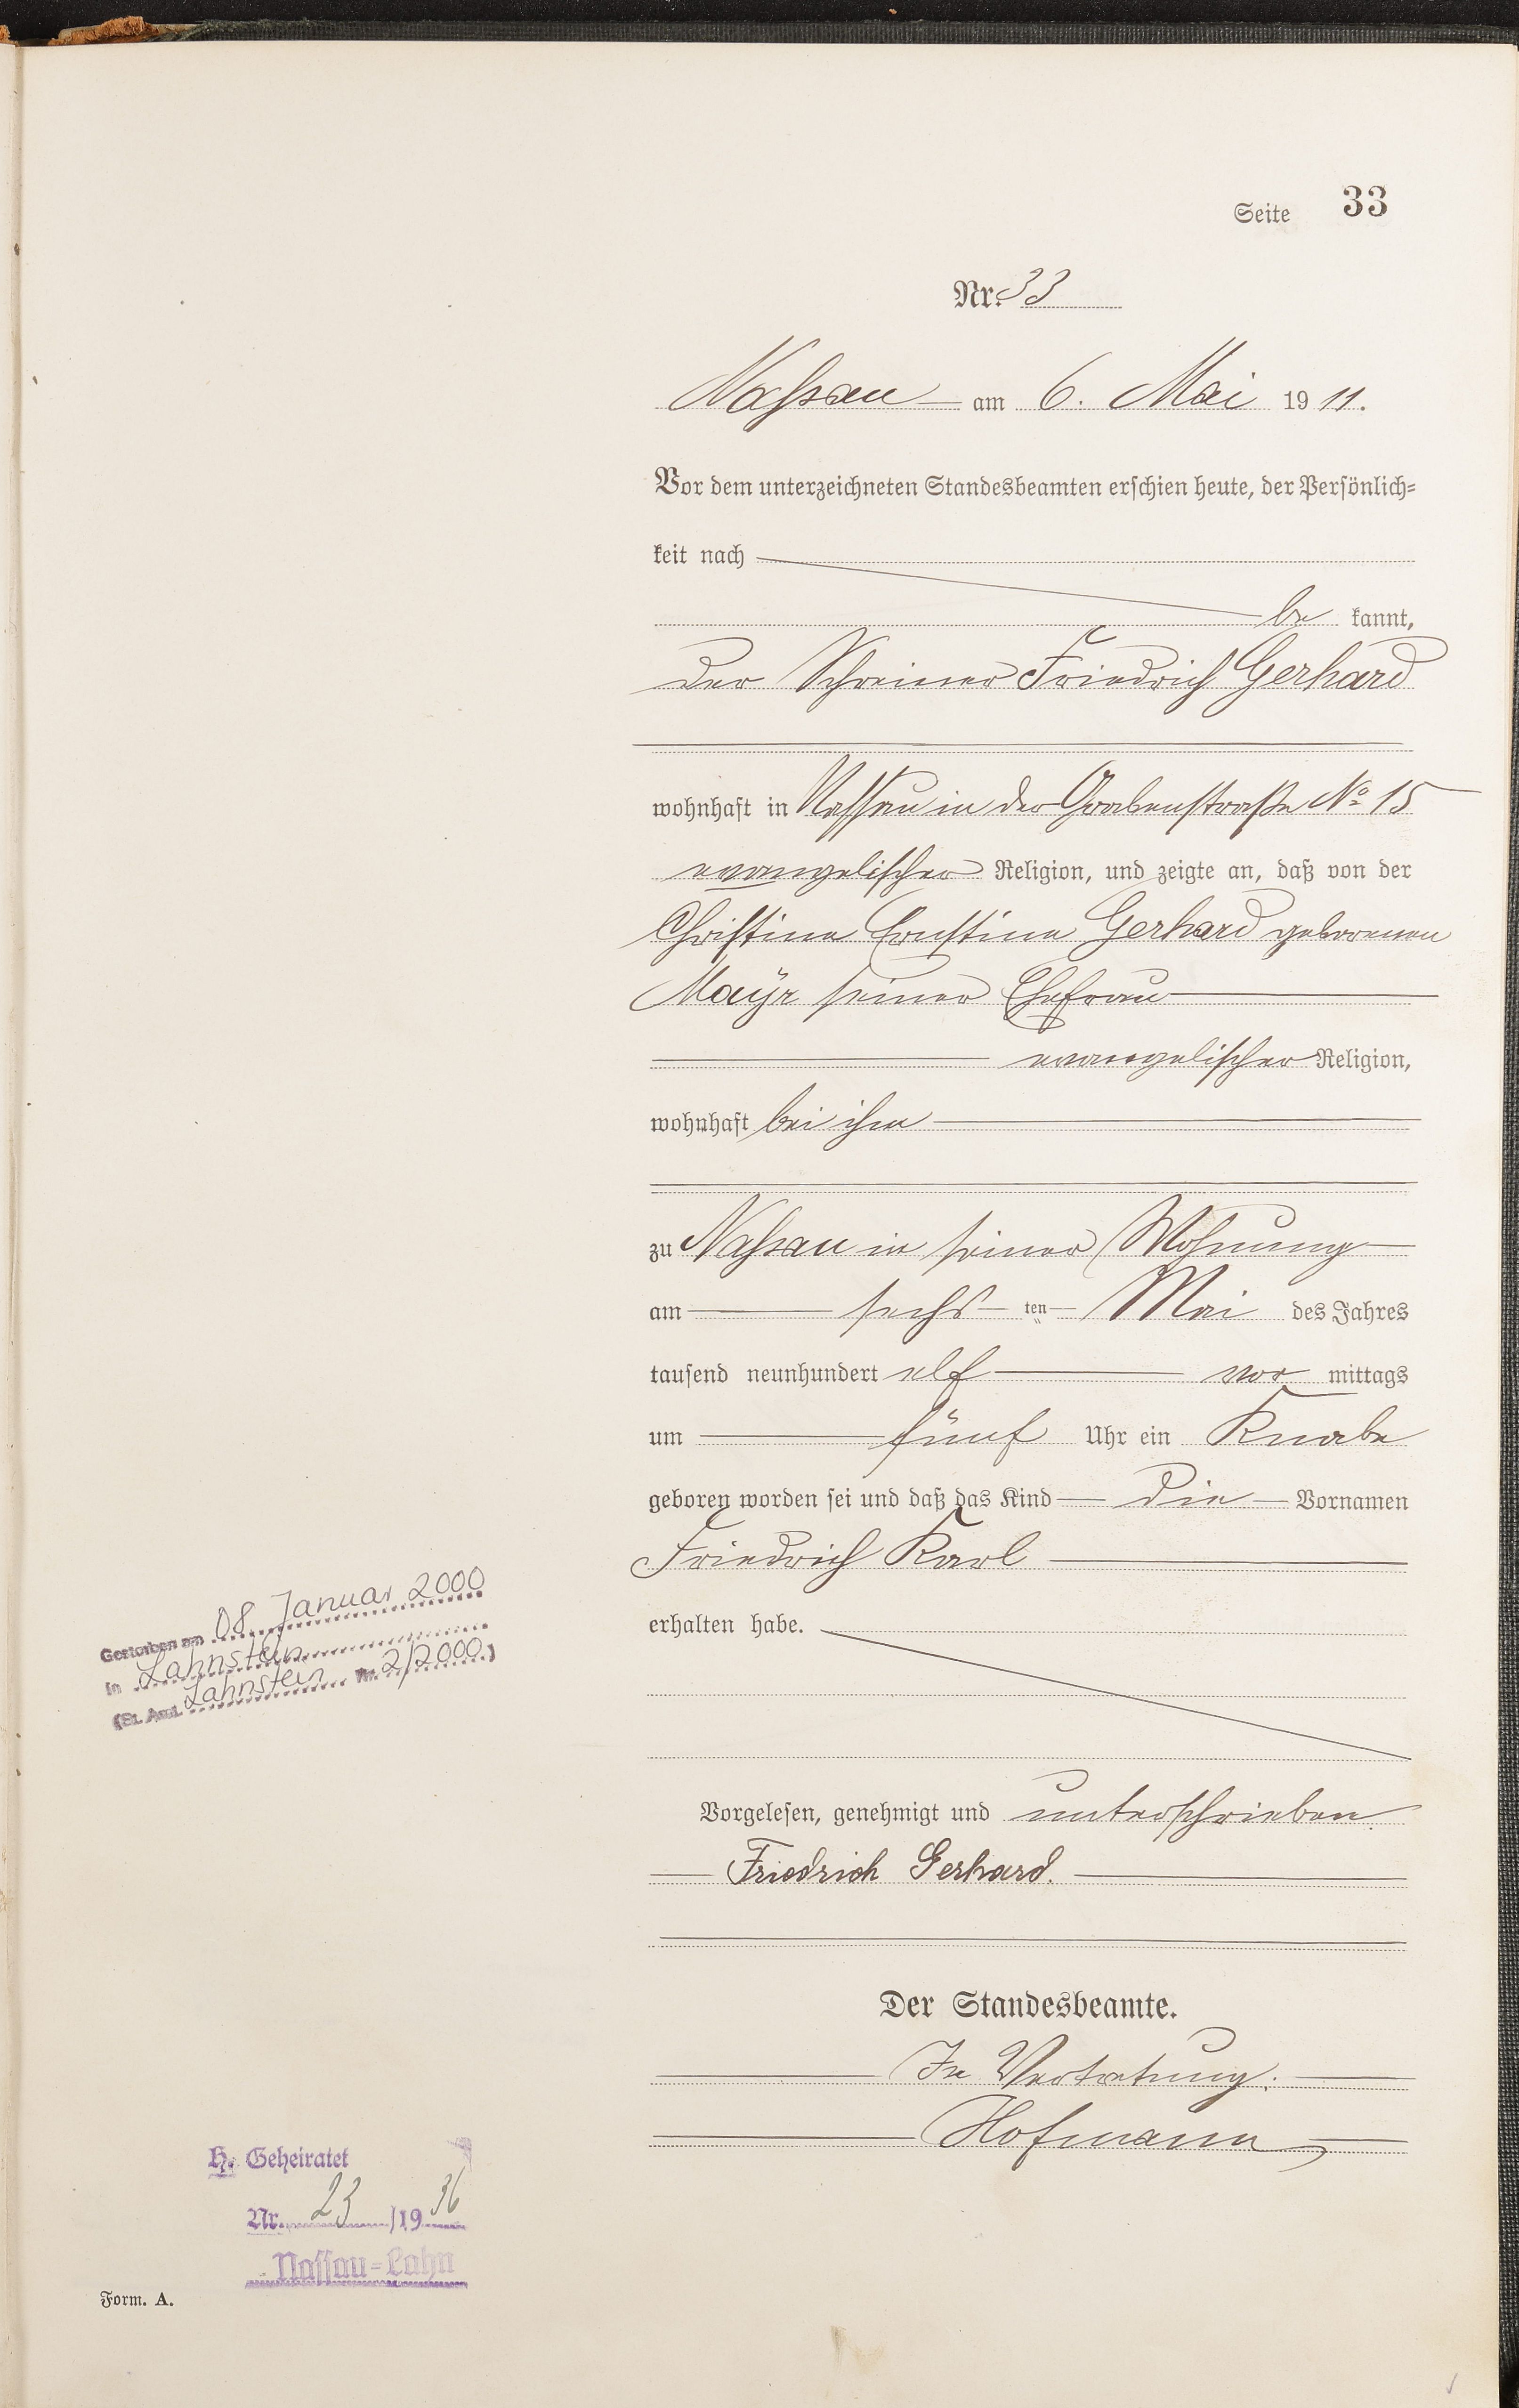 Seite 33
Nr. 33
Nassau am 6. Mai 1911.
Vor dem unterzeichneten Standesbeamten erschien heute, der Persönlich-
keit nach
be kannt,
der Schreiner Friedrich Gerhard
wohnhaft in Nassau in der Grabenstraße No 15
evangelischer Religion, und zeigte an, daß von der
Christine Ernstine Gerhard geborenen
Mayr seiner Ehefrau
evangelischer Religion,
wohnhaft bei ihm
zu Nassau in seiner Wohnung
am sechs ten Mai des Jahres
tausend neunhundert elf vor mittags
um fünf Uhr ein Knabe
geboren worden sei und daß das Kind die Vornamen
Friedrich Karl
erhalten habe.
Vorgelesen, genehmigt und unterschrieben.
Friedrich Gerhard.
Der Standesbeamte.
In Vertretung:
Hofmann
Gestorben am 08. Januar 2000
in Lahnstein
(St. Amt Lahnstein Nr. 2/2000)
H. Geheiratet
Nr. 23 /1936
Nassau-Lahn
Form. A.